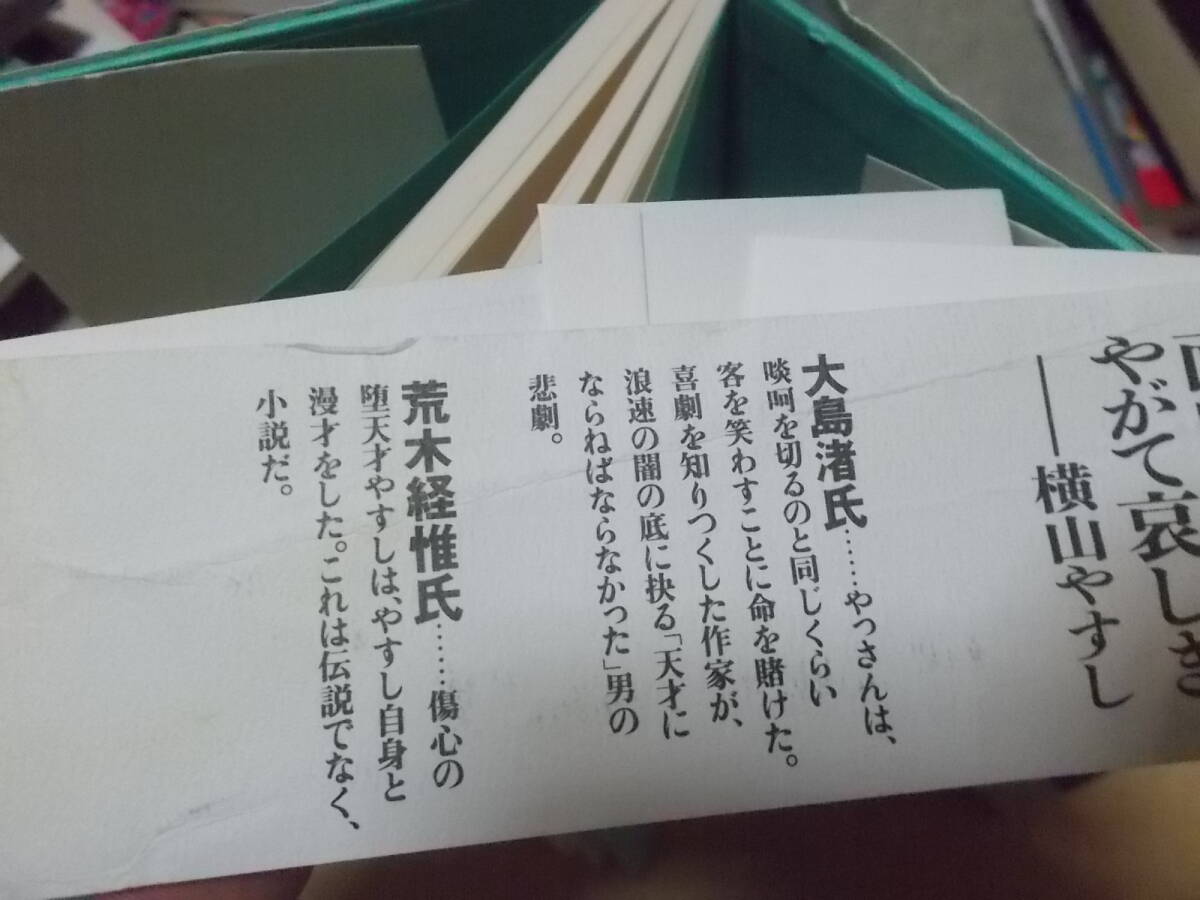 やがて哀しき
――横山やすし
大島渚氏……やっさんは、
啖呵を切るのと同じくらい
客を笑わすことに命を賭けた。
喜劇を知りつくした作家が、
浪速の闇の底に抉る「天才に
ならねばならなかった」男の
悲劇。
荒木経惟氏……傷心の
堕天才やすしは、やすし自身と
漫才をした。これは伝説でなく、
小説だ。